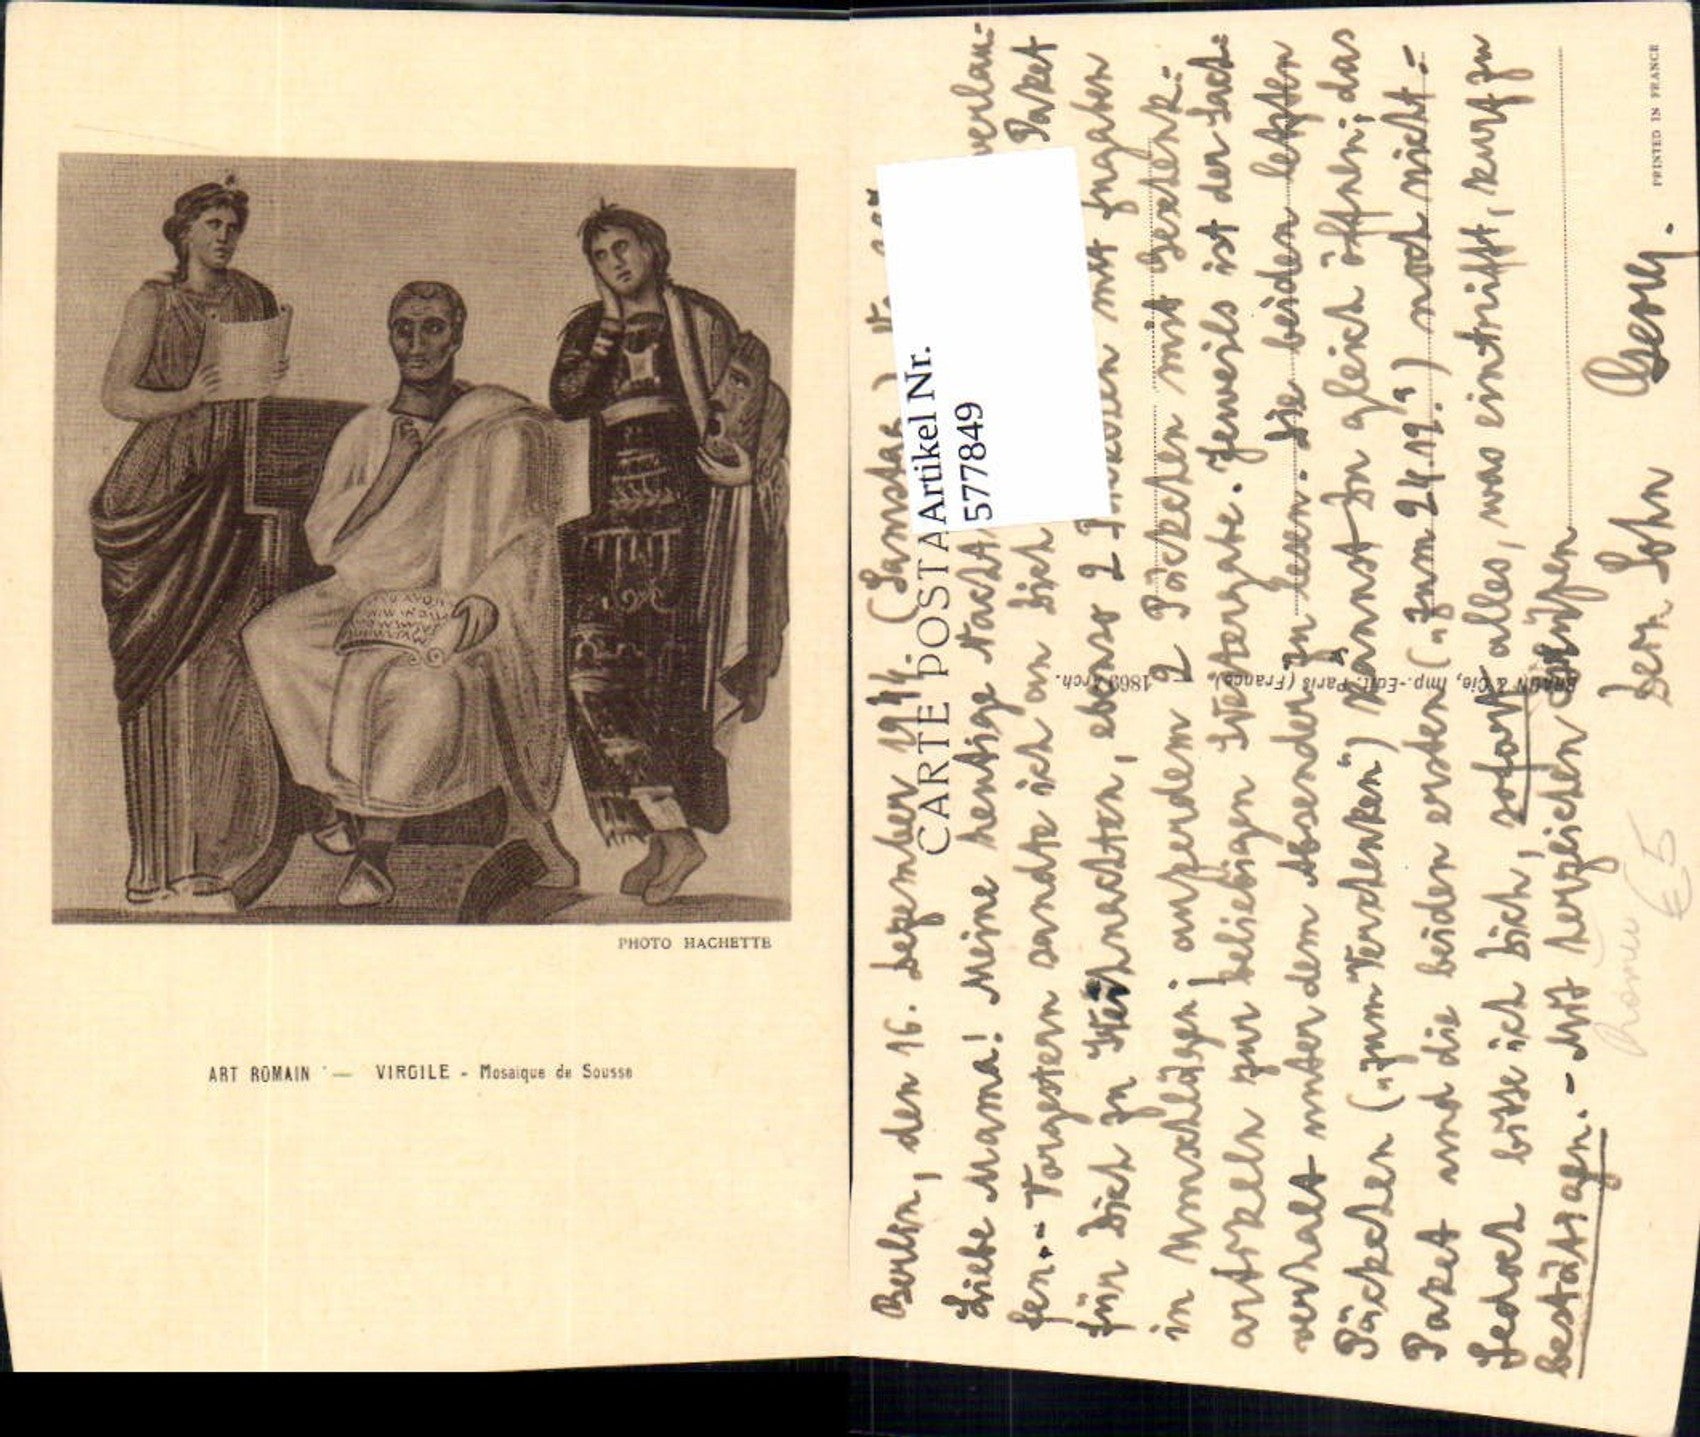 PHOTO HACHETTE
ART ROMAIN — VIRGILE - Mosaïque de Sousse
CARTE POSTA
Artikel Nr.
577849
BRAUN & Cie, Imp.-Edit. Paris (France)
1869 Arch.
PRINTED IN FRANCE
Berlin, den 16. Dezember 1944. (Samstag)
Liebe Mama! Meine heutige Nacht verlau=
fen. - Vorgestern sandte ich an Dich Paket
für Dich zu Weihnachten, ebenso 2 mit Zugaben
in Umschlägen; außerdem 2 Päckchen mit Geschenk=
artikeln zur beliebigen Weitergabe. Jeweils ist der Sach=
verhalt unter dem Absender zu lesen. Die beiden letzten
Päckchen („zum Verschenken") kannst Du gleich öffnen; das
Paket und die beiden ersten („Zum 24.12.") noch nicht. -
Jedoch bitte ich Dich, sofort alles, was eintrifft, kurz zu
bestätigen. - Mit herzlichen Grüßen
Dein Sohn Georg.
€5